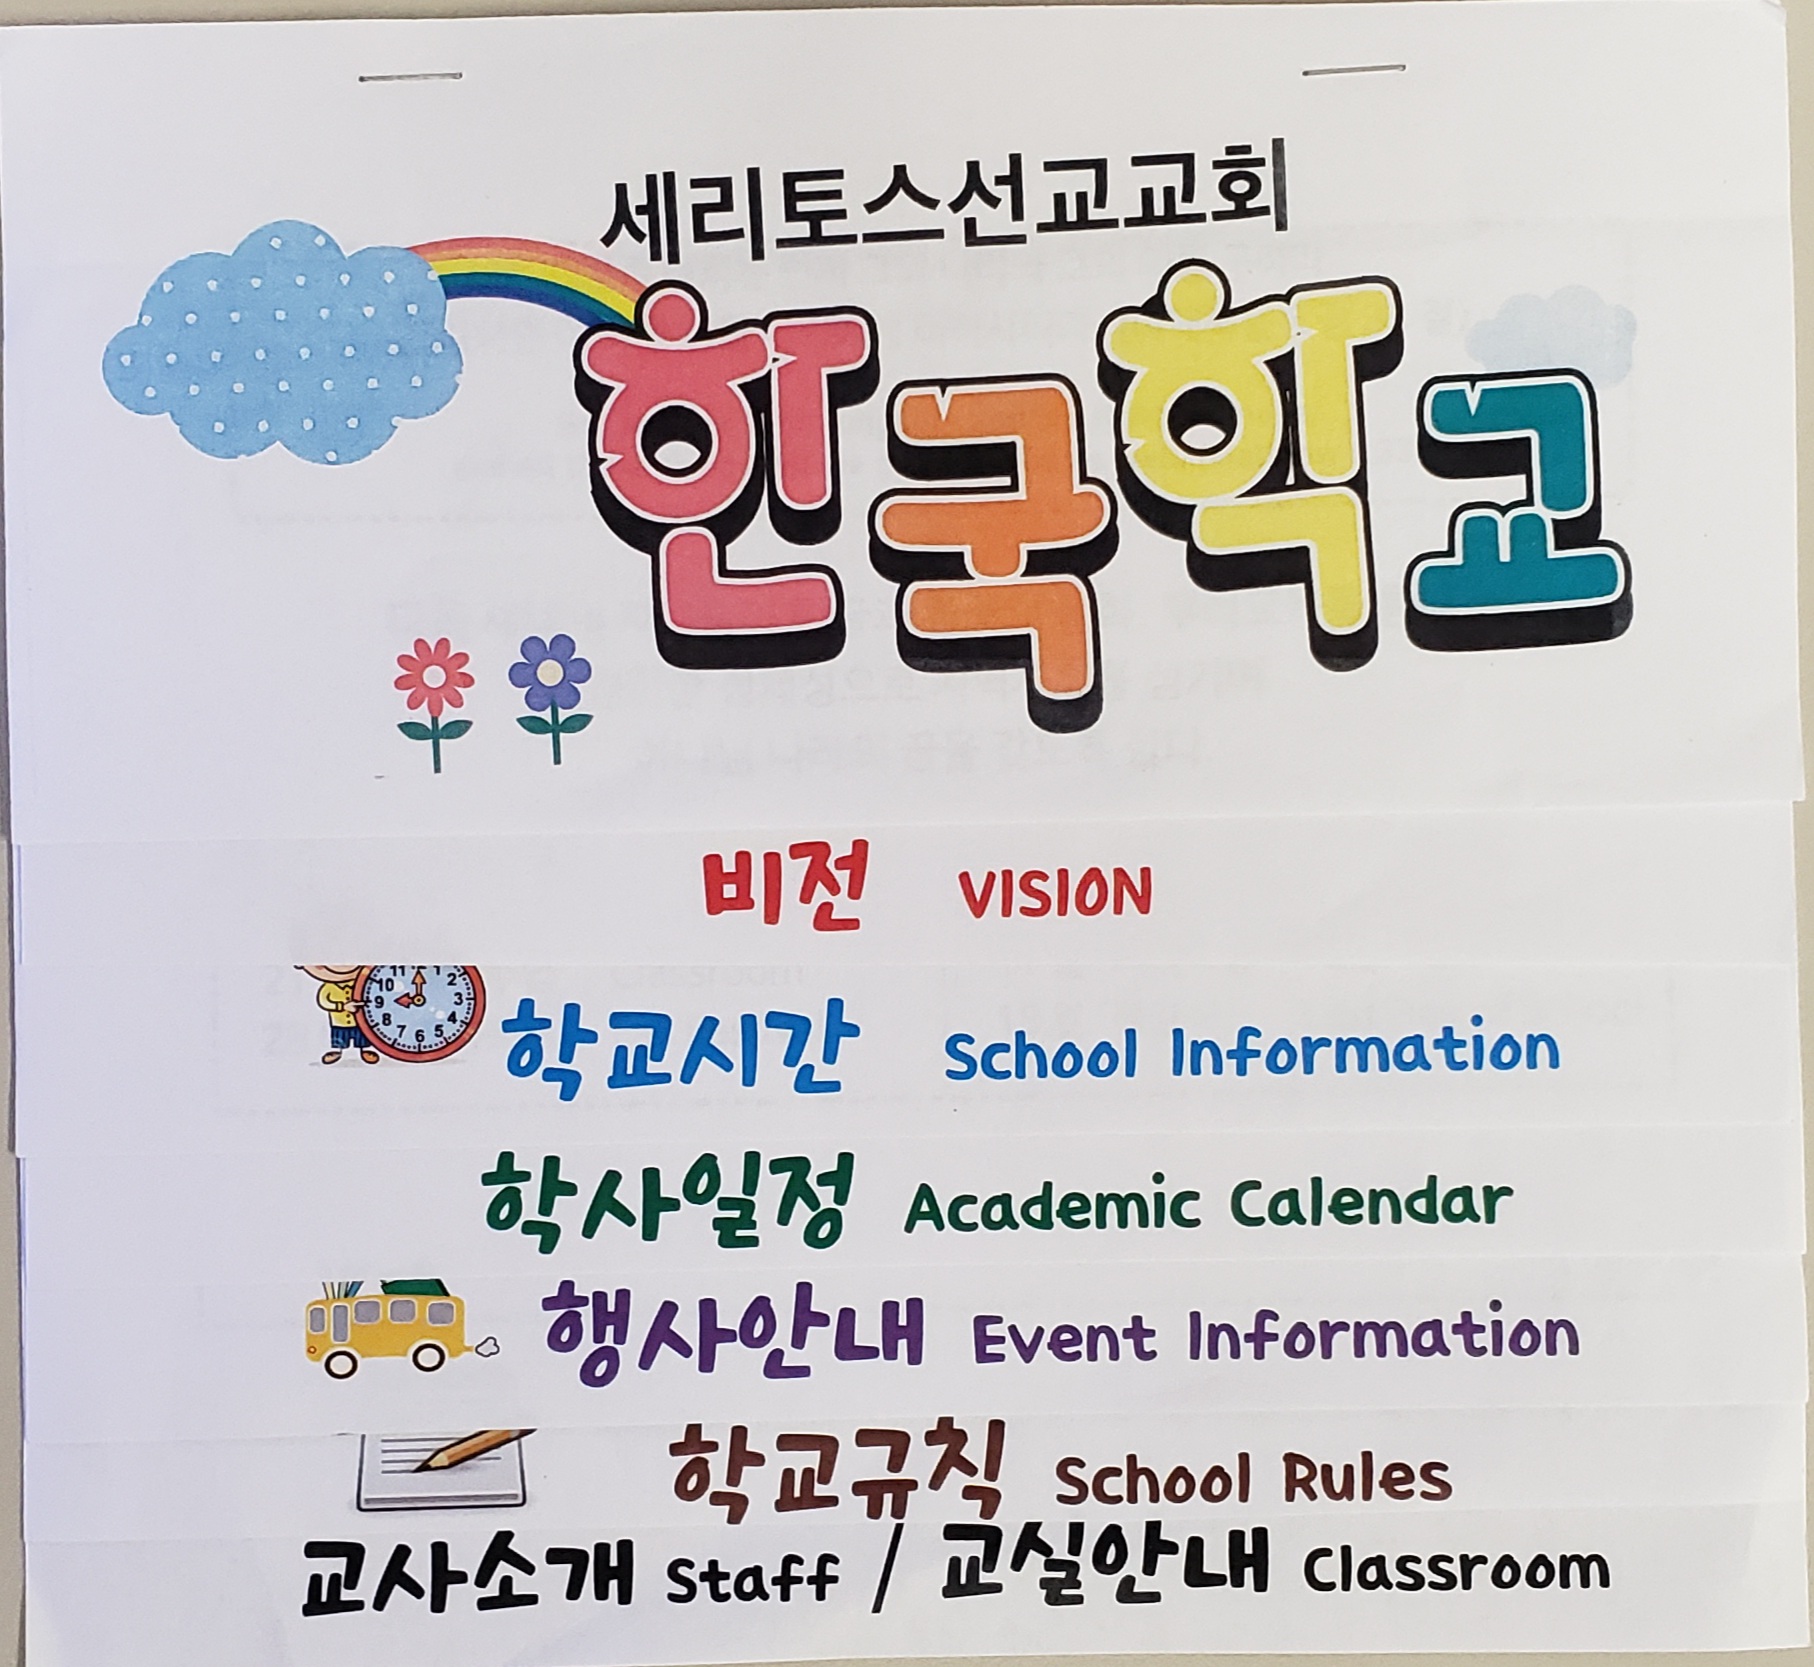 세리토스선교교회
한국학교
비전 VISION
학교시간 School Information
학사일정 Academic Calendar
행사안내 Event Information
학교규칙 School Rules
교사소개 Staff / 교실안내 Classroom